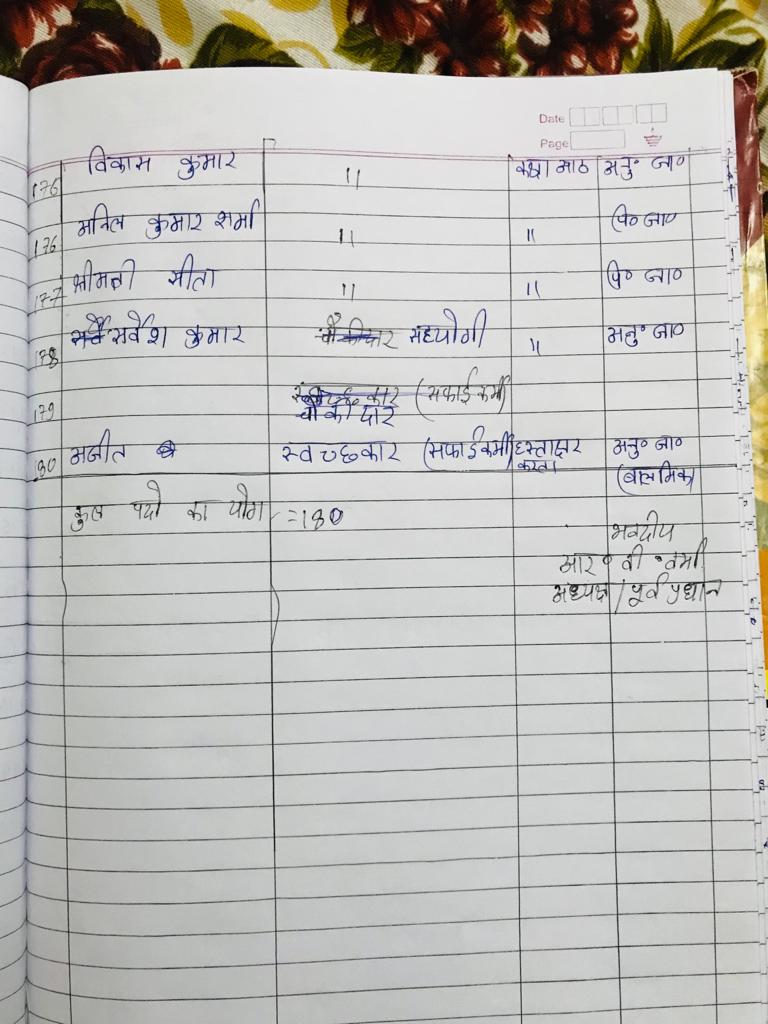 Date
Page
176 विकास कुमार " कक्षा आठ अनु० जा०
176 अनिल कुमार शर्मा " " पि० जा०
177 श्रीमती सीता " " पि० जा०
178 सर्वेश कुमार सहयोगी " अनु० जा०
179 स्वच्छकार (सफाई कर्मी)
चौकीदार
180 अजीत स्वच्छकार (सफाई कर्मी) हस्ताक्षर अनु० जा०
करता (बाल्मिक)
कुल पदो का योग =180
भवदीय
आर० वी० वर्मा
अध्यक्ष / पूर्व प्रधान